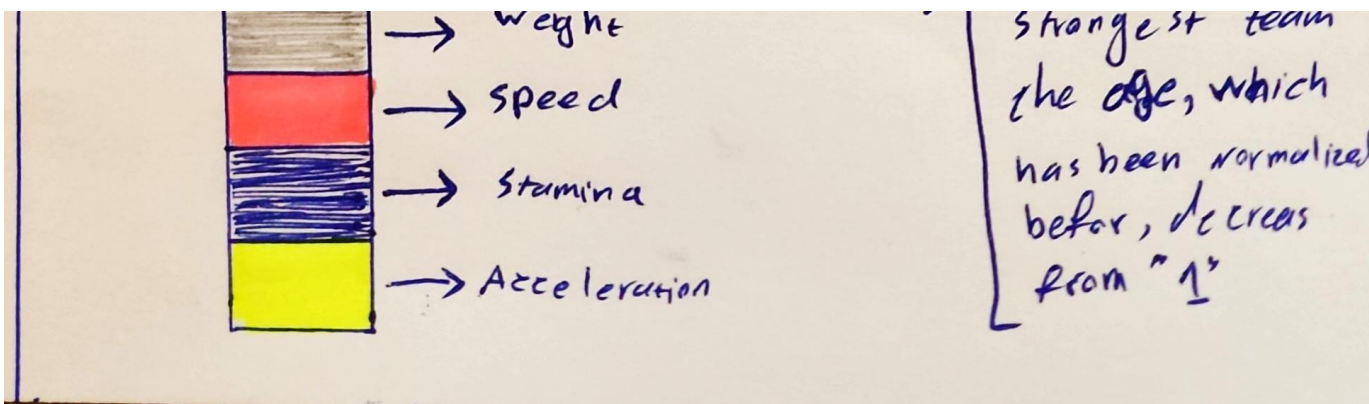 Weight
speed
Stamina
Acceleration
strongest team
the age, which
has been normalized
befor, decreas
from "1"